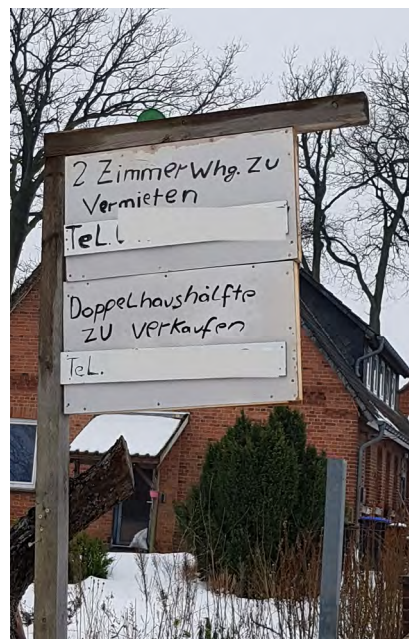 2 Zimmer Whg. zu
Vermieten
Tel.
Doppelhaushälfte
zu verkaufen
Tel.